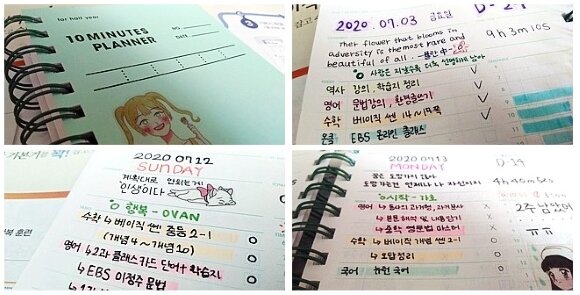 for half year
10 MINUTES
PLANNER
NO.
DATE
2020.07.03 금요일
The flower that blooms in
adversity is the most rare and
beautiful of all.
9h 3m 10s
역사 강의, 학습지 정리
영어 문법강의,
수학 베이직 쎈 14~17쪽
온클 EBS 온라인 클래스
2020 07.12
SUNDAY
계획대로 안되는게
인생이다
행복 - OVAN
수학 ↳ 베이직 쎈 중등 2-1
(개념 4 ~ 개념 10)
영어 ↳ 2과 플래스카드 단어 + 학습지
↳ EBS 이정주 문법
2020 07.13
MONDAY
D-14
시작 - 가호
4h 45m 52s
2주 남았어
ㅠㅠ
↳ 중학 영문법 마스터
수학 ↳ 베이직 개념 쎈 2-1
↳ 오답 정리
국어